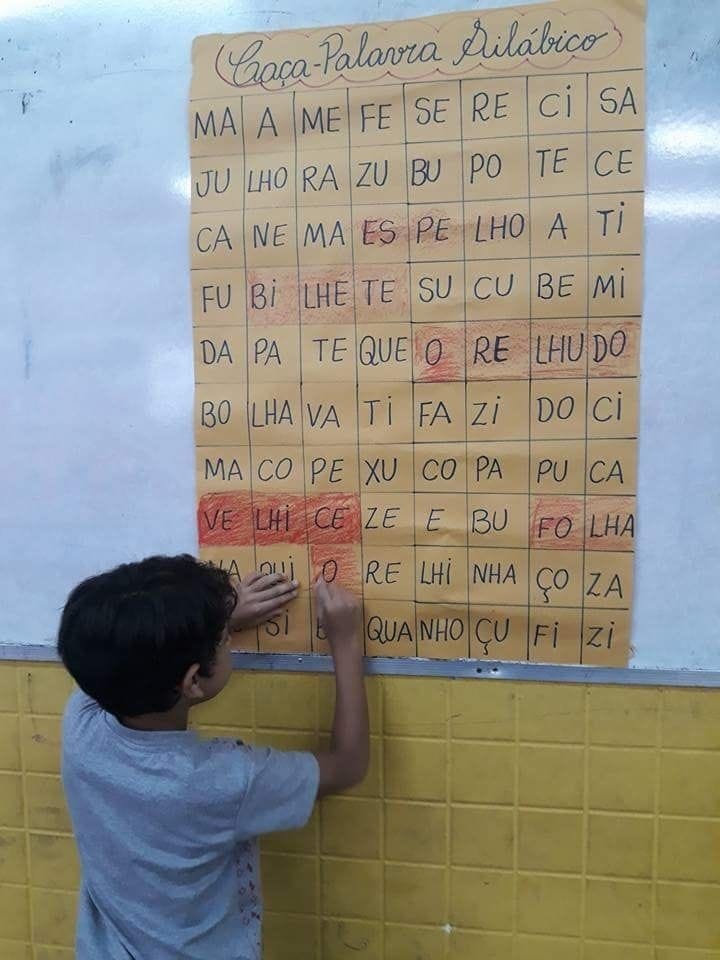 Caça-Palavra Silábico
MA A ME FE SE RE Ci SA
JU LHO RA ZU BU PO TE CE
CA NE MA ES PE LHO A Ti
FU Bi LHE TE SU CU BE Mi
DA PA TE QUE O RE LHU DO
BO LHA VA Ti FA Zi DO Ci
MA CO PE XU CO PA PU CA
VE LHi CE ZE E BU FO LHA
O RE LHi NHA ÇO ZA
Si QUA NHO ÇU Fi Zi